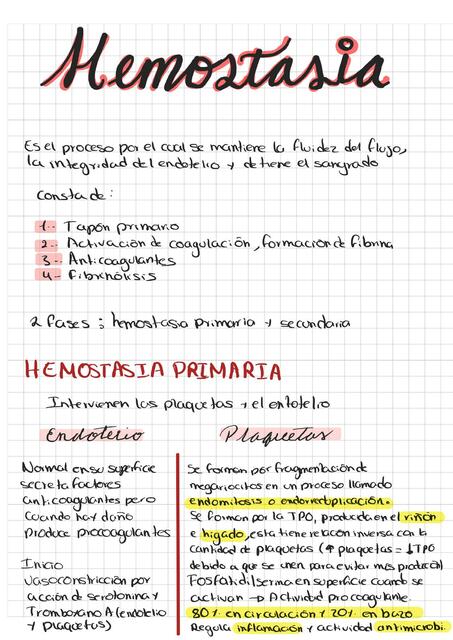 Hemostasia
Es el proceso por el cual se mantiene la fluidez del flujo,
la integridad del endotelio y detiene el sangrado
Consta de:
1.- Tapón primario
2.- Activación de coagulación, formación de fibrina
3.- Anticoagulantes
4.- Fibrinólisis
2 fases : hemostasia primaria y secundaria
HEMOSTASIA PRIMARIA
Intervienen las plaquetas y el entotelio
Endotelio
Normal en su superficie
secreta factores
anticoagulantes pero
cuando hay daño
produce procoagulantes
Inicio
Vasoconstricción por
acción de serotonina y
Tromboxano A (endotelio
y plaquetas)
Plaquetas
Se forman por fragmentación de
megariocitos en un proceso llamado
endomitosis o endorreduplicación.
Se forman por la TPO, producida en el riñón
e hígado, esta tiene relación inversa con la
cantidad de plaquetas (↑ plaquetas = ↓TPO
debido a que se unen para evitar mas producción)
Fosfatidilserina en superficie cuando se
activan → Actividad procoagulante.
80% en circulación y 20% en bazo
Regula inflamación y actividad antimicrobi.